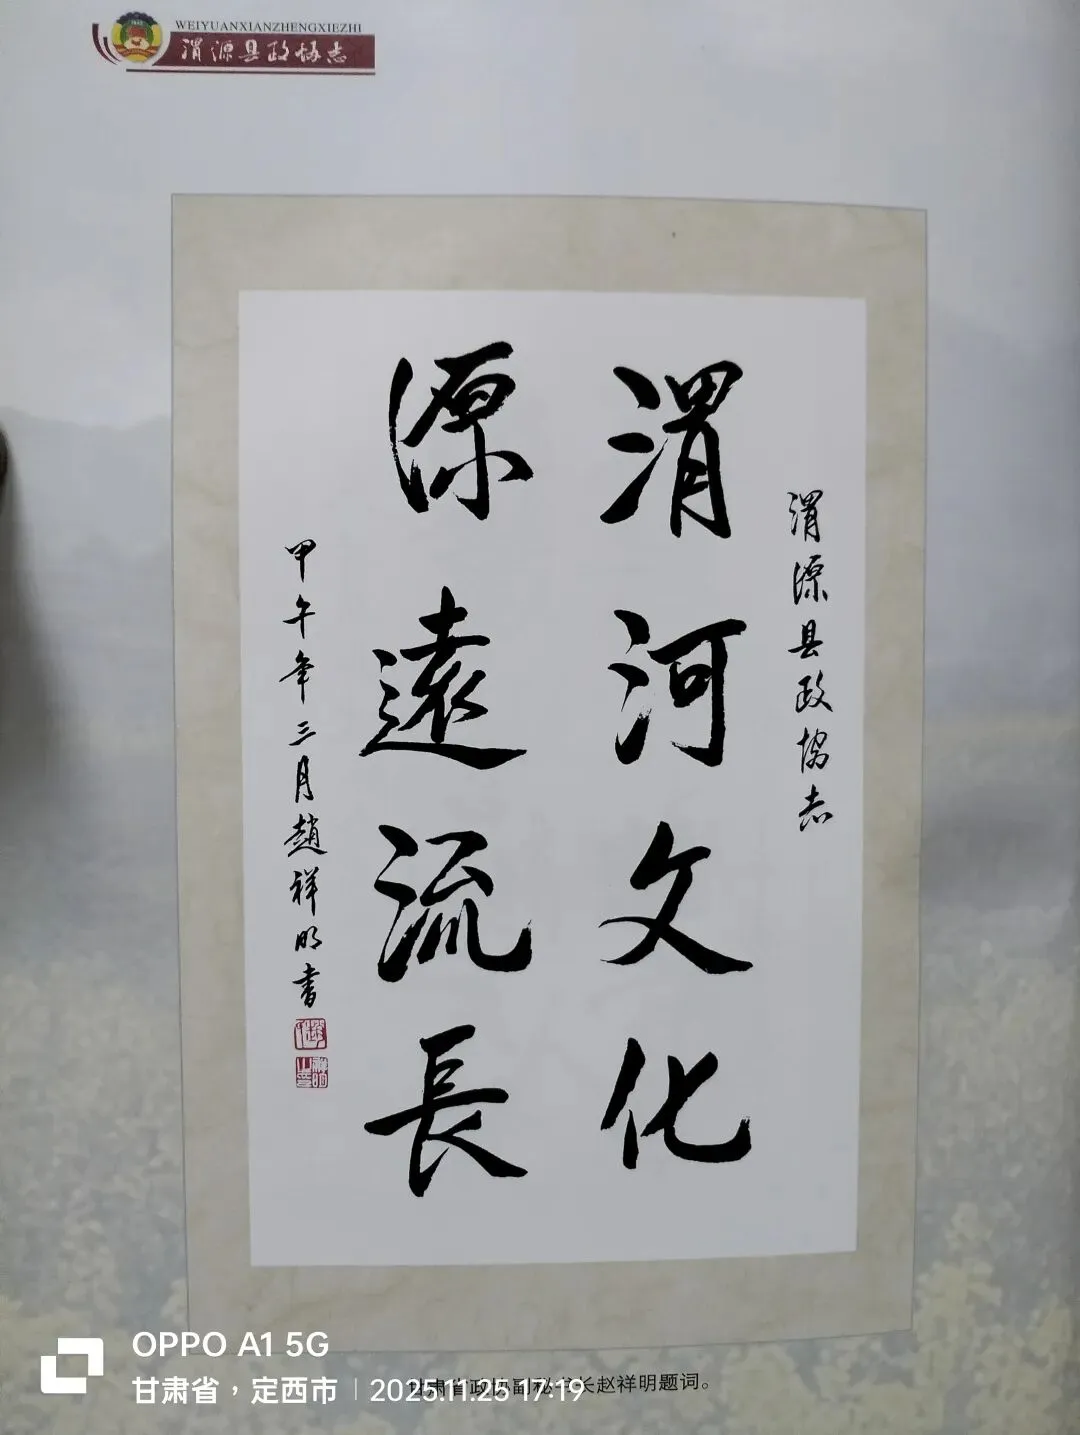 WEIYUANXIANZHENGXIEZHI
渭源县政协志
渭源县政协志
渭河文化
源遠流長
甲午年三月趙祥明書
甘肃省政协副秘书长赵祥明题词。
OPPO A1 5G
甘肃省，定西市 | 2025.11.25 17:19